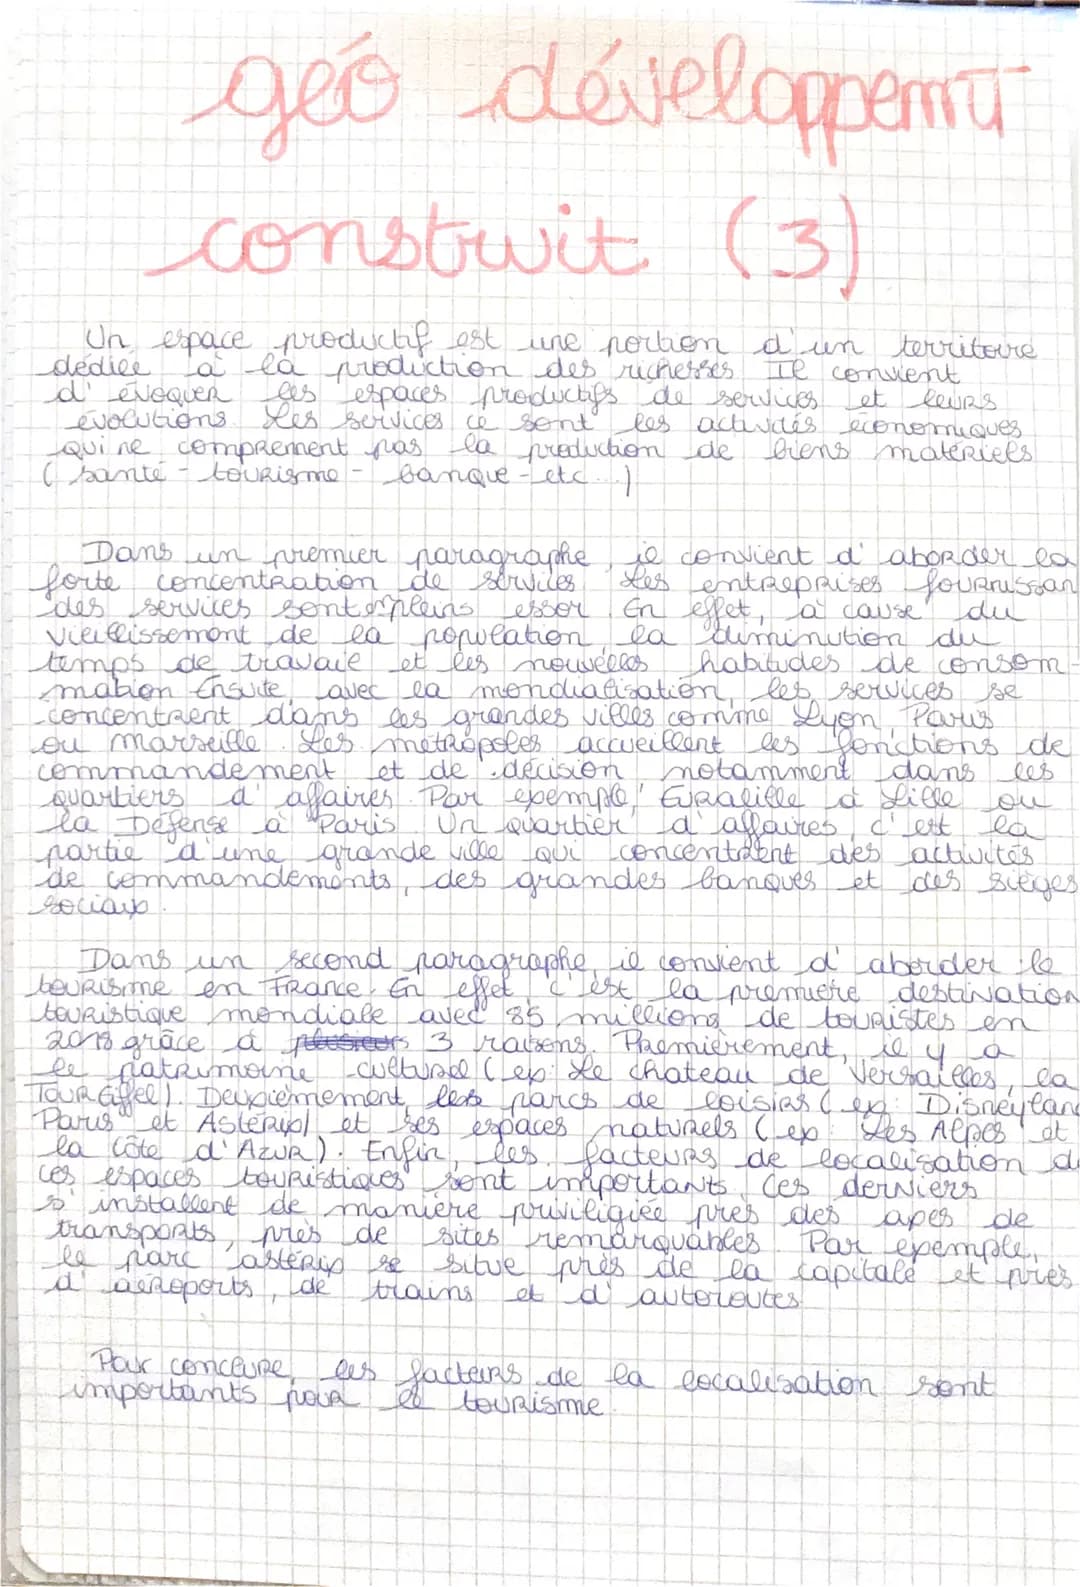 géo développemt
construit (3)
Un espace productif est une portion d'un territoire
dédiée à la production des richesses Il convient
d'évoquer les espaces productifs de services et leurs
évolutions. Les services ce sont les activités économiques
qui ne comprement pas la production de biens matériels
(santé - tourisme - banque - etc...)
Dans un premier paragraphe, il convient d'aborder la
forte concentration de services. Les entreprises fournissan
des services sont en pleins essor. En effet, à cause du
vieillissement de la population, la diminution du
temps de travail et les nouvelles habitudes de consom-
mation Ensuite, avec la mondialisation, les services se
concentrent dans les grandes villes comme Lyon, Paris
ou marseille. Les métropoles accueillent les fonctions de
commandement et de décision, notamment dans les
quartiers d'affaires. Par exemple, Euralille à Lille ou
la Défense à Paris. Un quartier d'affaires, c'est la
partie d'une grande ville qui concentrent des activités
de commandements, des grandes banques et des sièges
sociaux.
Dans un second paragraphe, il convient d'aborder le
tourisme en France. En effet, c'est la première destination
touristique mondiale avec 85 millions de touristes en
2018 grâce à plusieurs 3 raisons. Premièrement, il y a
le patrimoine culturel (ex: Le chateau de Versailles, la
Tour Eiffel). Deuxièmement, les parcs de loisirs (ex: Disneylan
Paris et Astérix) et ses espaces naturels (ex: Les Alpes et
la Côte d'Azur). Enfin, les facteurs de localisation de
ces espaces touristiques sont importants. Ces derniers
s'installent de manière priviligiée près des axes de
transports, près de sites remarquables. Par exemple,
le parc astérix se situe près de la capitale et près
d'aéroports, de trains et d'autoroutes.
Pour conclure, les facteurs de la localisation sont
importants pour le tourisme.